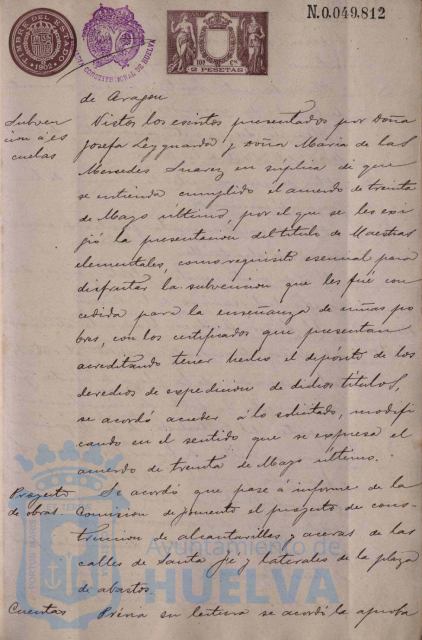 TIMBRE DEL ESTADO
1902
CONSTITUCIONAL DE HUELVA
2 PESETAS
N.0.049.812
de Aragon
Subven
cion á es
cuelas
Vistos los escritos presentados por Doña
Josefa Leyguarda y Doña Maria de las
Mercedes Suarez en súplica de que
se entienda cumplido el acuerdo de treinta
de Mayo último, por el que se les exi
jió la presentacion del titulo de Maestras
elementales, como requisito esencial para
disfrutar la subvencion que les fué con
cedida para la enseñanza de niñas po
bres, con los certificados que presentan
acreditando tener hecho el depósito de los
derechos de expedicion de dichos titulos,
se acordó acceder á lo solicitado, modifi
cando en el sentido que se expresa el
acuerdo de treinta de Mayo último.
Proyecto
de obras
Se acordó que pase á informe de la
Comision de fomento el proyecto de cons-
truccion de alcantarillas y aceras de las
calles de Santa Fé y laterales de la plaza
de abastos.
Cuentas
Prévia su lectura se acordó la aproba
Ayuntamiento de
HUELVA